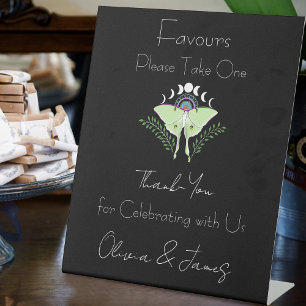 Favours
Please Take One
Thank-You
for Celebrating with Us
Olivia & James